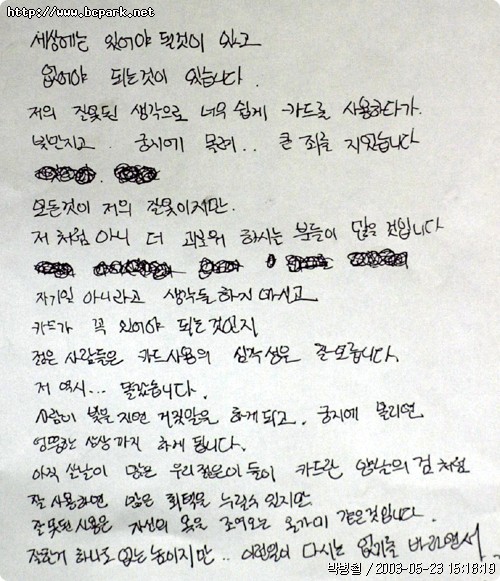 http://www.bcpark.net
세상에는 있어야 될것이 있고
없어야 되는것이 있습니다.
저의 잘못된 생각으로 너무 쉽게 카드로 사용하다가.
빚만지고. 궁지에 몰려.. 큰 죄를 지었습니다
모든것이 저의 잘못이지만.
저 처럼 아니 더 괴로워 하시는 분들이 많을 것입니다
자기일 아니라고 생각들 하지 마시고
카드가 꼭 있어야 되는것인지
젊은 사람들은 카드사용의 심각성은 잘모릅니다.
저 역시... 몰랐습니다.
사람이 빚을 지면 거짓말을 하게되고. 궁지에 몰리면
엉뚱한 상상까지 하게 됩니다.
아직 살날이 많은 우리젊은이들이 카드란 양날의 검 처럼
잘 사용하면 많은 혜택을 누릴수 있지만
잘못된사용은 자신의 목을 조여오는 올가미 같은것입니다.
잘한거 하나도 없는 놈이지만.. 이런일이 다시는 없기를 바라면서..
박병철 / 2003-05-23 15:18:19